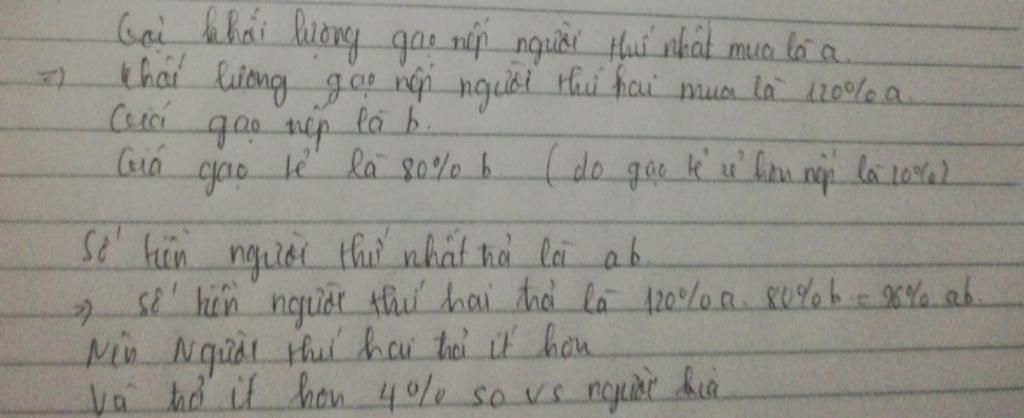 Gọi khối lượng gạo nếp người thứ nhất mua là a.
=> khối lượng gạo nếp người thứ hai mua là 120% a.
Giá gạo nếp là b.
Giá gạo tẻ là 80% b ( do gạo tẻ rẻ hơn nếp là 20%)
Số tiền người thứ nhất trả là ab.
=> số tiền người thứ hai trả là 120% a. 80% b = 96% ab.
Nên Người thứ hai trả ít hơn
Và trả ít hơn 4% so vs người kia